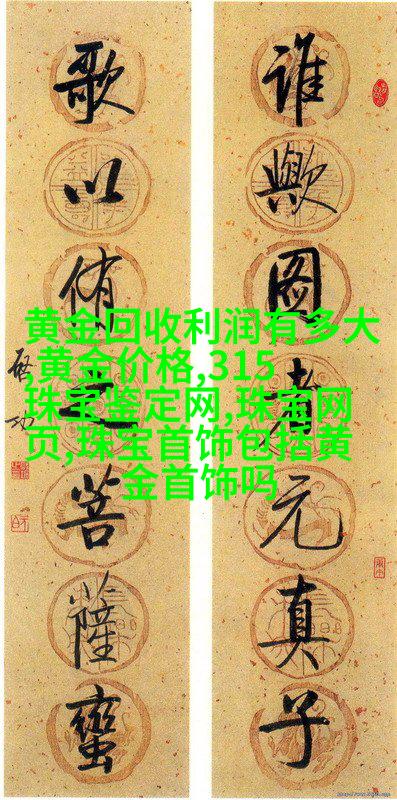 谁歟图者元真子
歌以侑之菩薩蠻
启功
黄金回收利润有多大
,黄金价格,315
珠宝鉴定网,珠宝网
页,珠宝首饰包括黄
金首饰吗